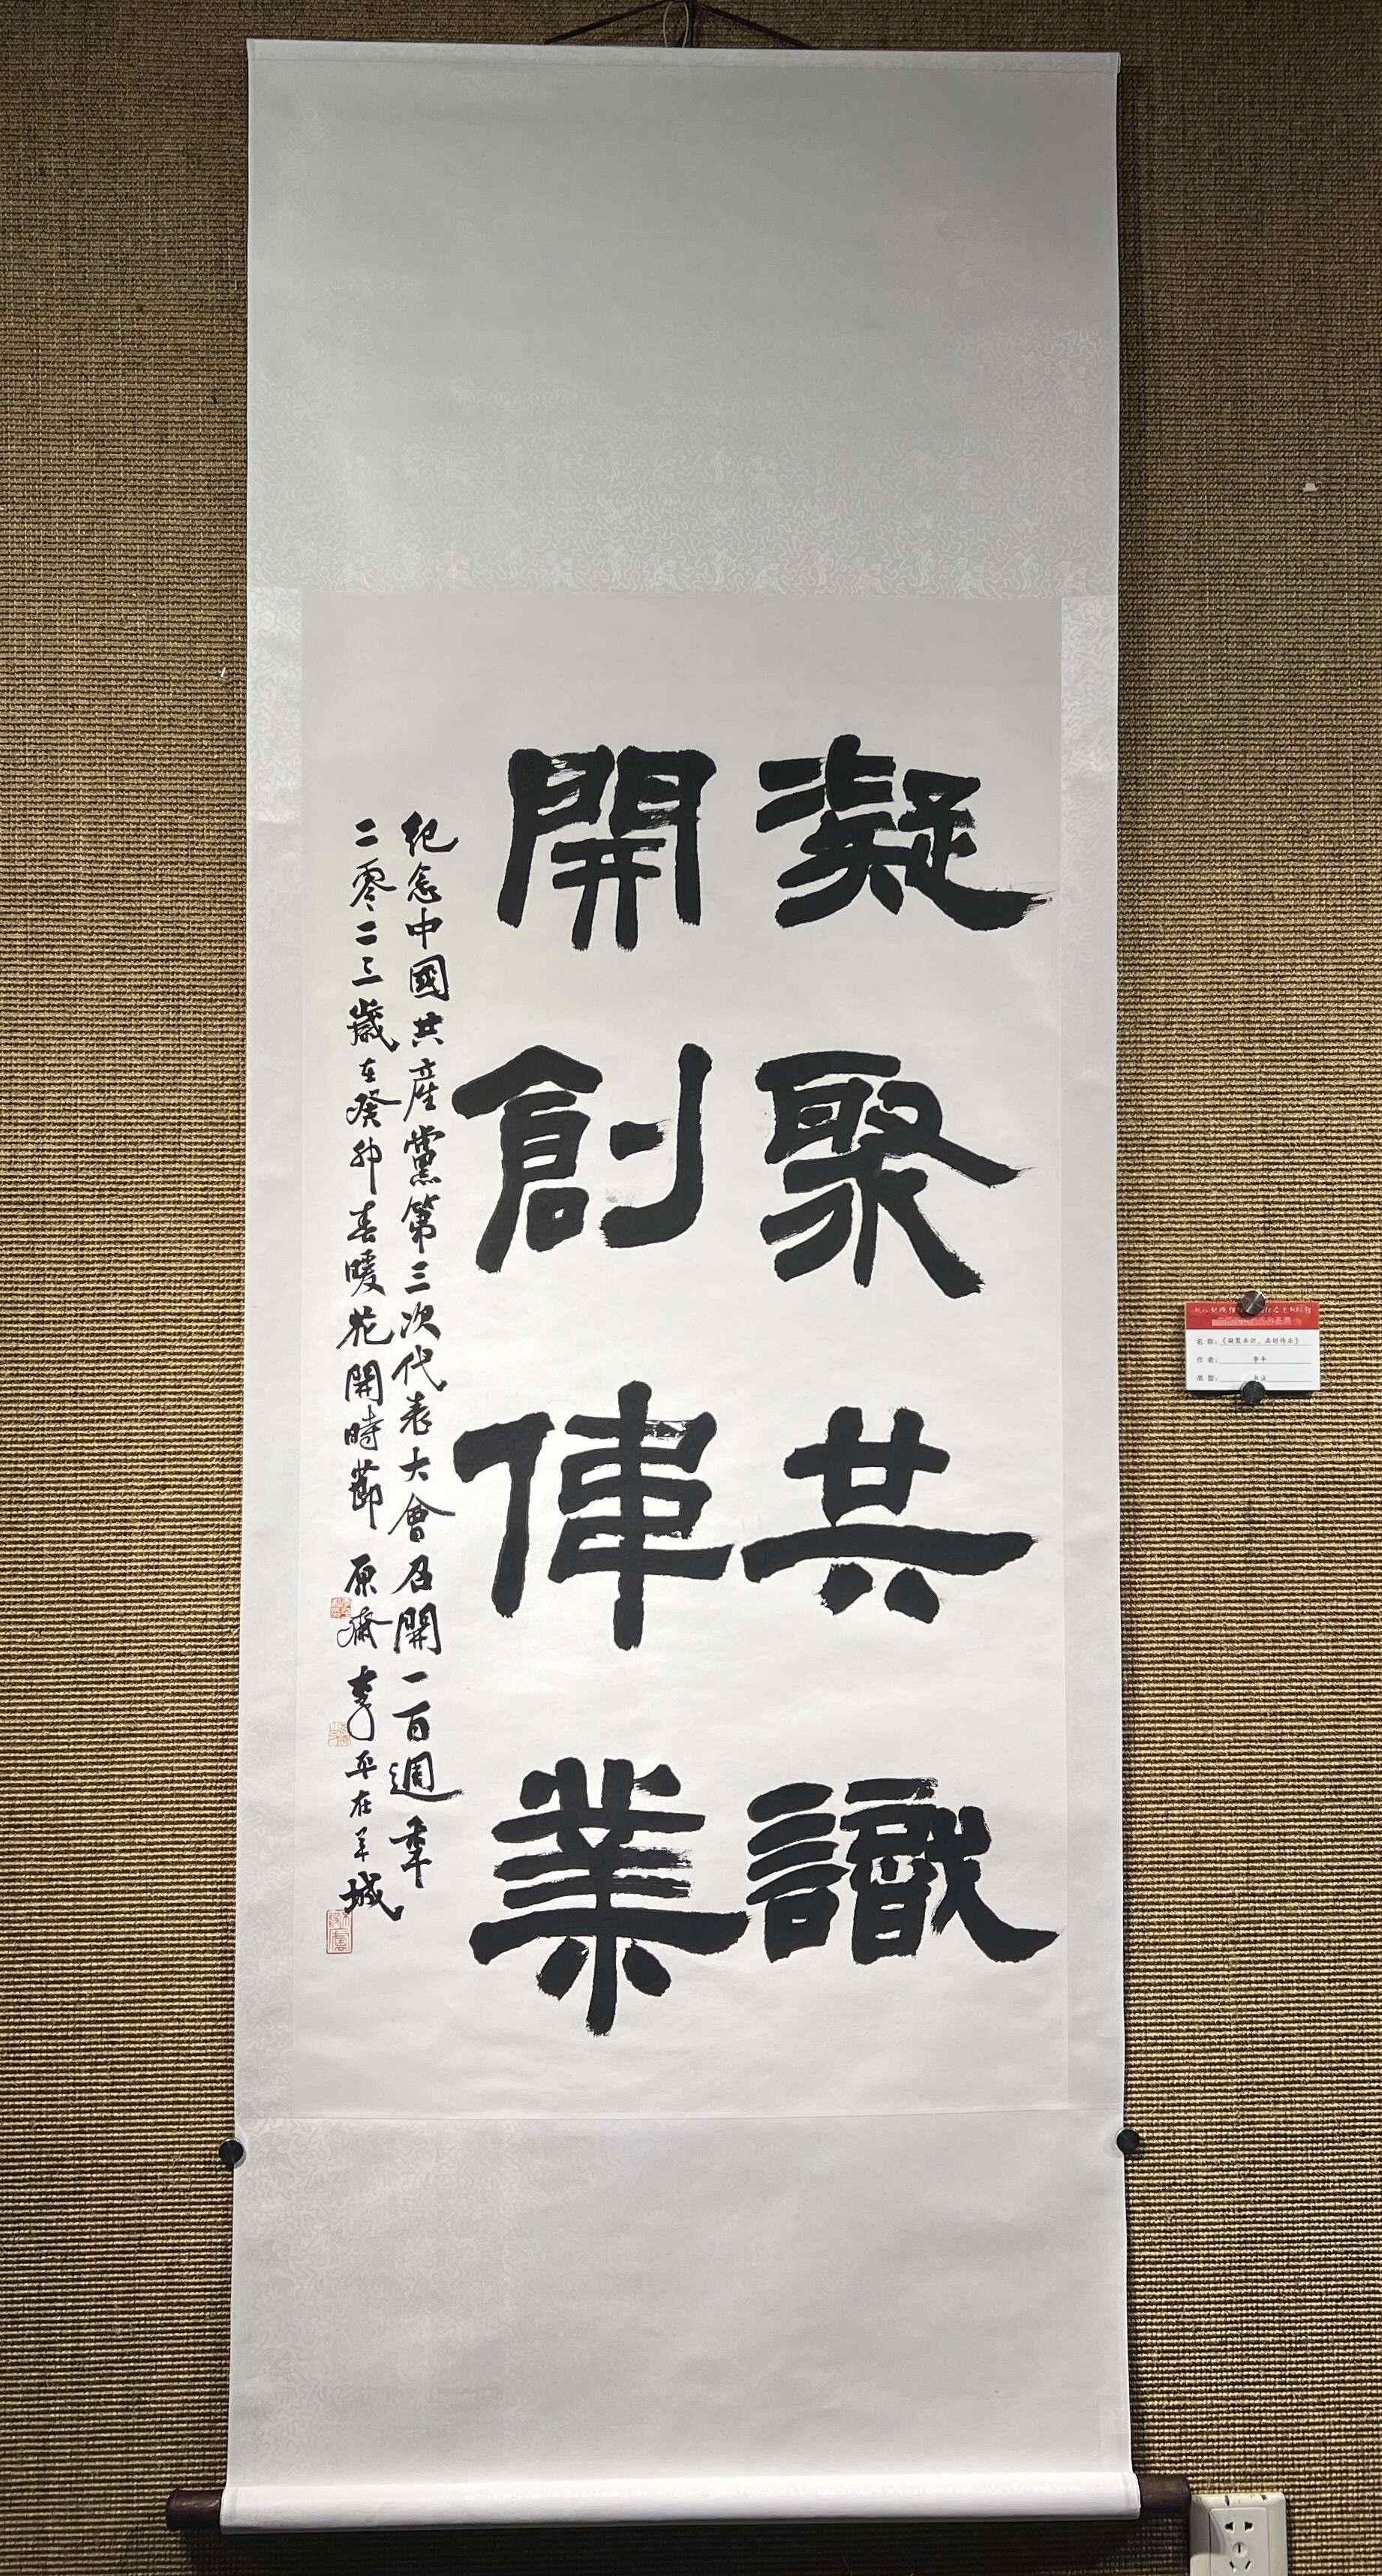 凝聚共識
開創偉業
紀念中國共産黨第三次代表大會召開一百週年
二零二三歲在癸卯春暖花開時節 原齋李平在羊城
名 称：《凝聚共识、开创伟业》
作 者： 李平
类 型： 书法